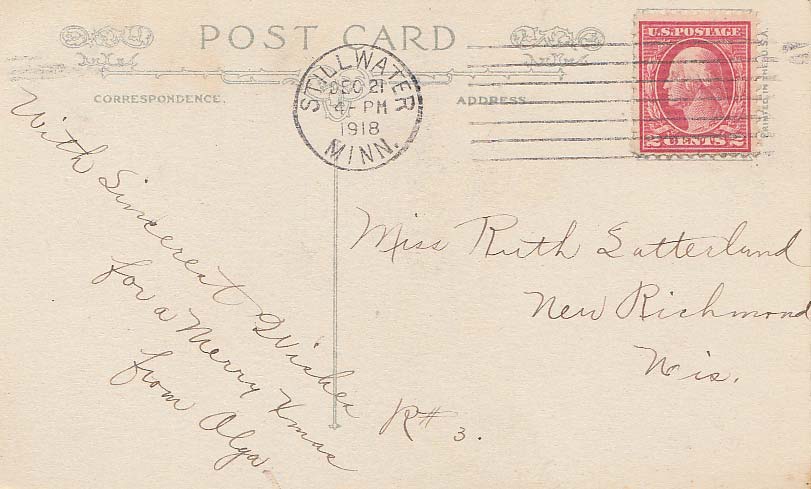 POST CARD
CORRESPONDENCE.
ADDRESS
STILLWATER
DEC 21
4- PM
1918
MINN.
U.S. POSTAGE
2 CENTS 2
PRINTED IN THE U.S.A.
With Sincerest Wishes
for a Merry Xmas
from Olga.
Miss Ruth Satterlund
New Richmond
Wis.
R# 3.